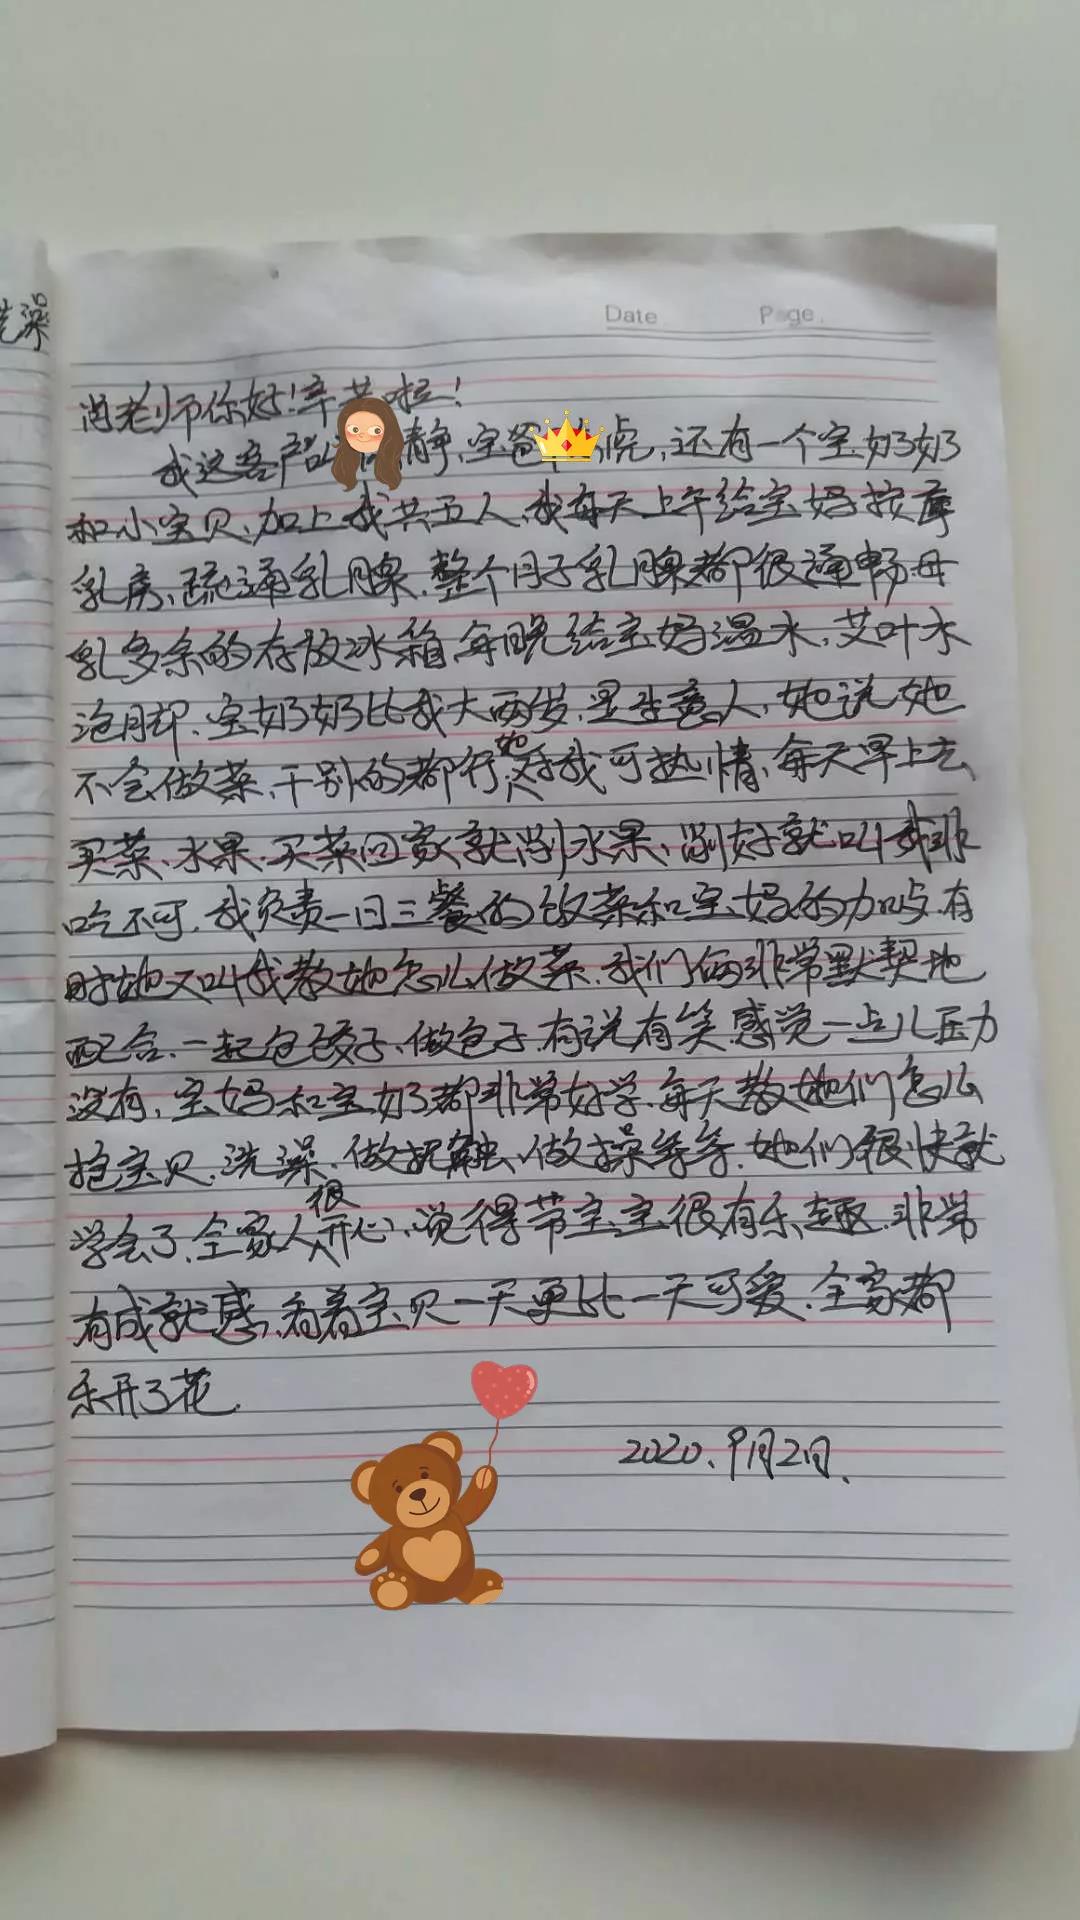 洗澡
Date Page.
尚老师你好！辛苦啦！
我这客户叫静、宝爸虎，还有一个宝奶奶
和小宝贝、加上我共五人、我每天上午给宝妈按摩
乳房、疏通乳腺.整个月子乳腺都很通畅.母
乳多余的存放冰箱.每晚给宝妈温水，艾叶水
泡脚.宝奶奶比我大两岁.是生意人，她说她
不会做菜、干别的都行，她对我可热情、每天早上去
买菜、水果.买菜回家就削水果、削好就叫我非
吃不可.我负责一日三餐的做菜和宝妈的加餐.有
时她又叫我教她怎么做菜.我们俩非常默契地
配合.一起包饺子、做包子.有说有笑.感觉一点儿压力
没有，宝妈和宝奶都非常好学.每天教她们怎么
抱宝贝.洗澡.做抚触、做操等等.她们很快就
学会了.全家人很开心、觉得带宝宝很有乐趣.非常
有成就感，看着宝贝一天更比一天可爱.全家都
乐开了花.
2020、9月2日、